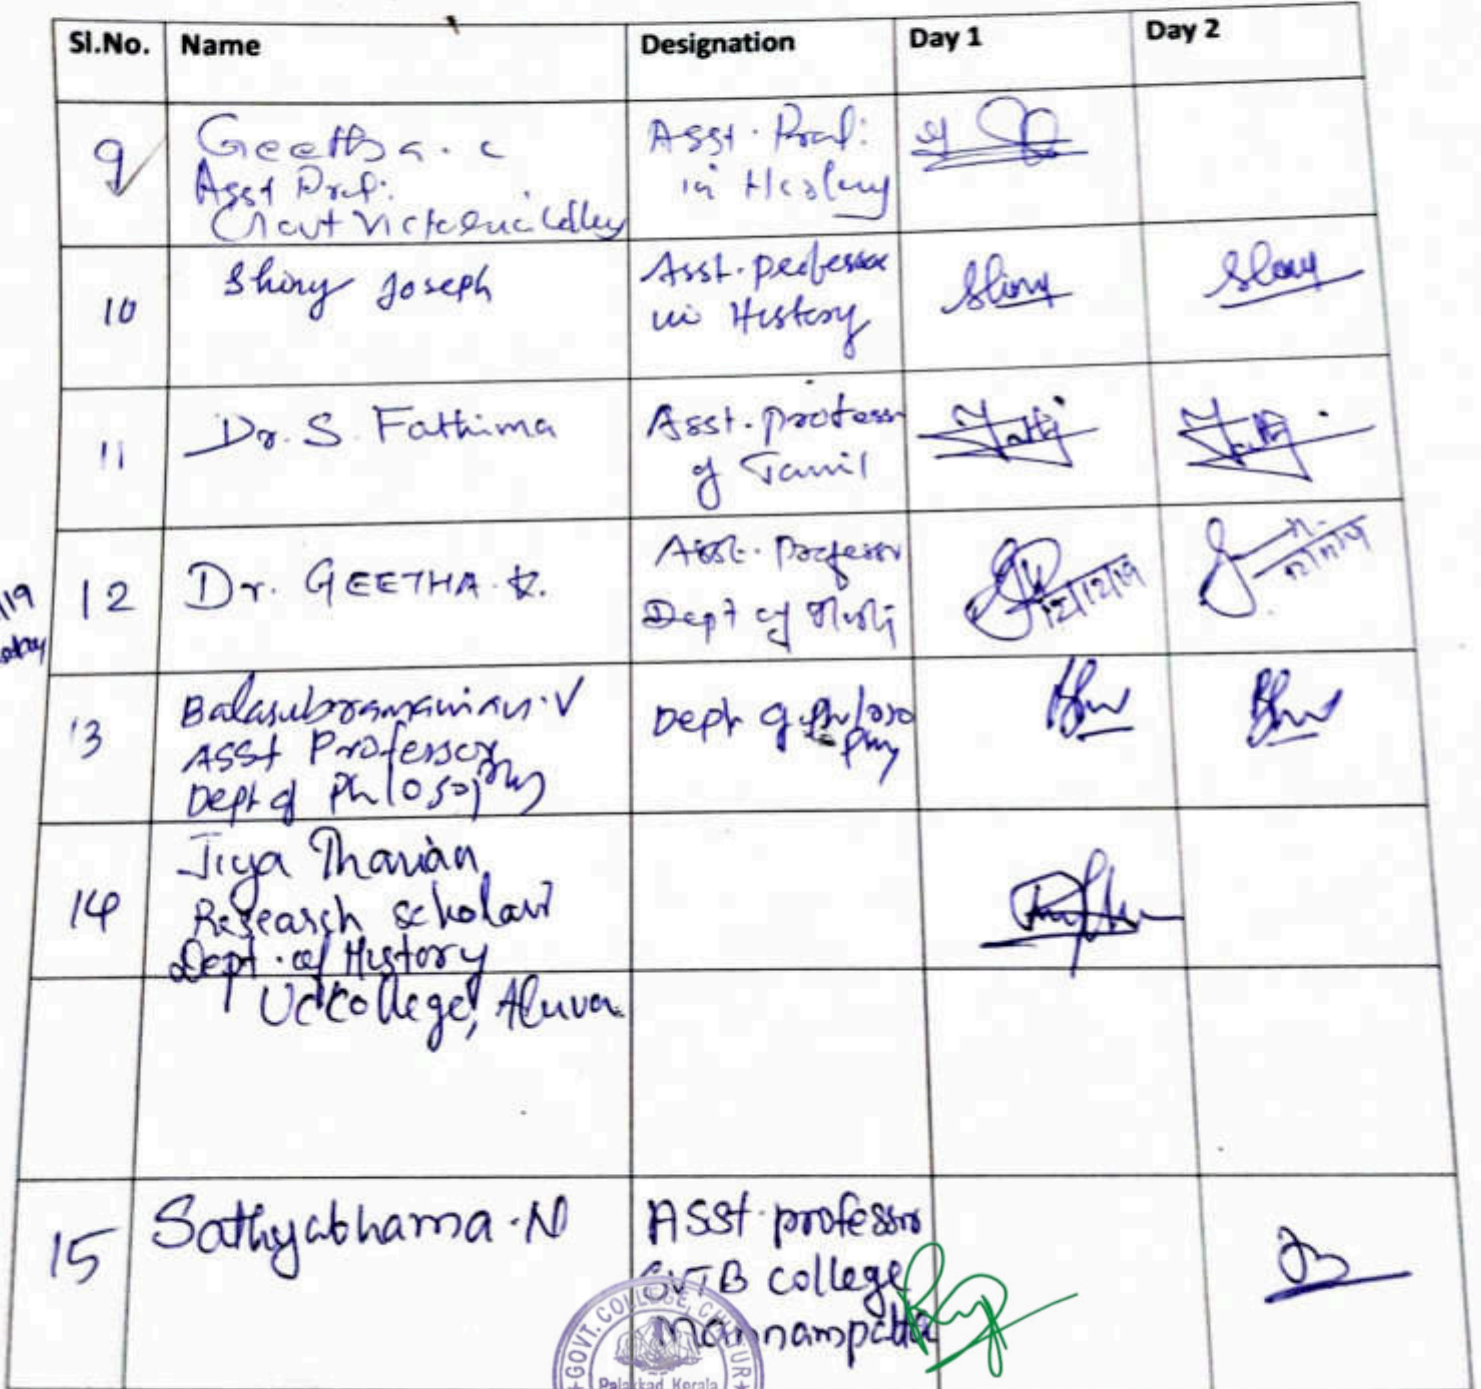 Sl.No. Name Designation Day 1 Day 2
9 Geetha. c Asst. Prof: in History
Asst Prof:
Govt Victoria College
10 Shiny Joseph Asst. professor in History Shiny Shiny
11 Dr. S. Fathima Asst. professor of Tamil
12 Dr. GEETHA. K. Asst. Professor Dept of 12/12/19
/19
13 Balasubramanian. V Dept of Philoso phy
Asst Professor
Dept of Philosophy
14 Jiya Tharian
Research scholar
Dept. of History
UC College, Aluva
15 Sathyabhama. N Asst. professor
SVTB college
Mannampatta
GOVT. COLLEGE, CHITTUR
Palakkad, Kerala